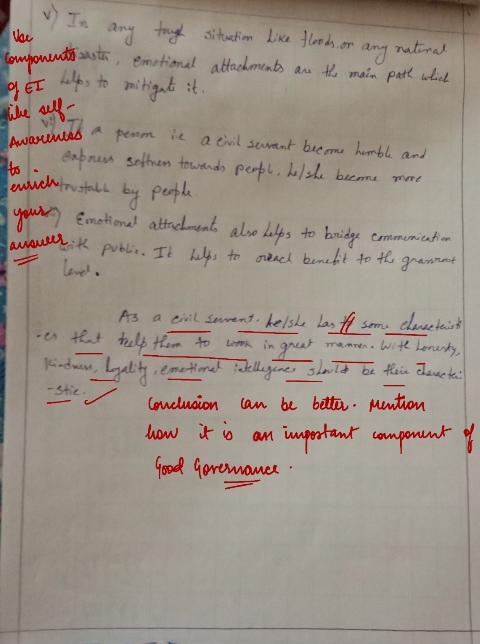 v) In any tough situation like floods, or any natural
disaster, emotional attachments are the main path which
helps to mitigate it.
vi) If a person i.e a civil servant become humble and
express softness towards people, he/she become more
trustable by people
Emotional attachments also helps to bridge communication
with public. It helps to reach benefit to the grassroot
level.
As a civil servant. he/she has some characterist
-cs that help them to work in great manner. With honesty,
kindness, loyality, emotional intelligence should be their character
-stic.
Use
components
of EI
like self-
Awareness
to
enrich
your
answer
Conclusion can be better. Mention
how it is an important component of
Good Governance.